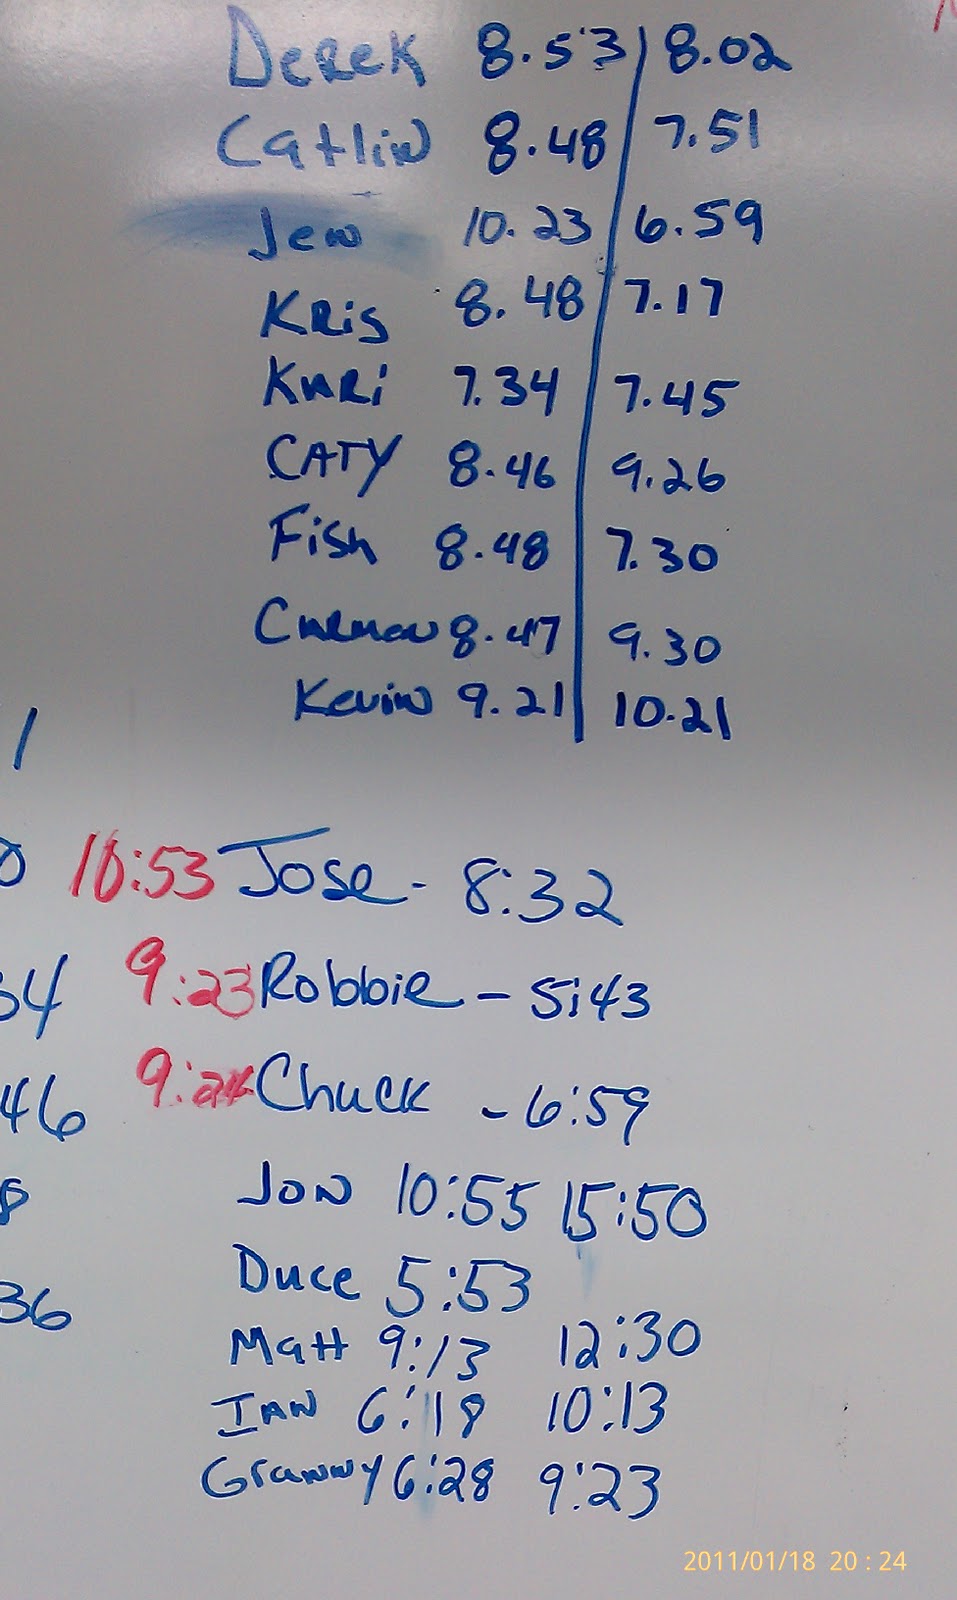 Derek 8.53 8.02
Catlin 8.48 7.51
Jen 10.23 6.59
Kris 8.48 7.17
Kari 7.34 7.45
CATY 8.46 9.26
Fish 8.48 7.30
Carmon 8.47 9.30
Kevin 9.21 10.21
10:53 Jose - 8:32
34 9:23 Robbie - 5:43
46 9:24 Chuck - 6:59
8 Jon 10:55 15:50
Duce 5:53
36 Matt 9:13 12:30
Ian 6:18 10:13
Granny 6:28 9:23
2011/01/18 20:24